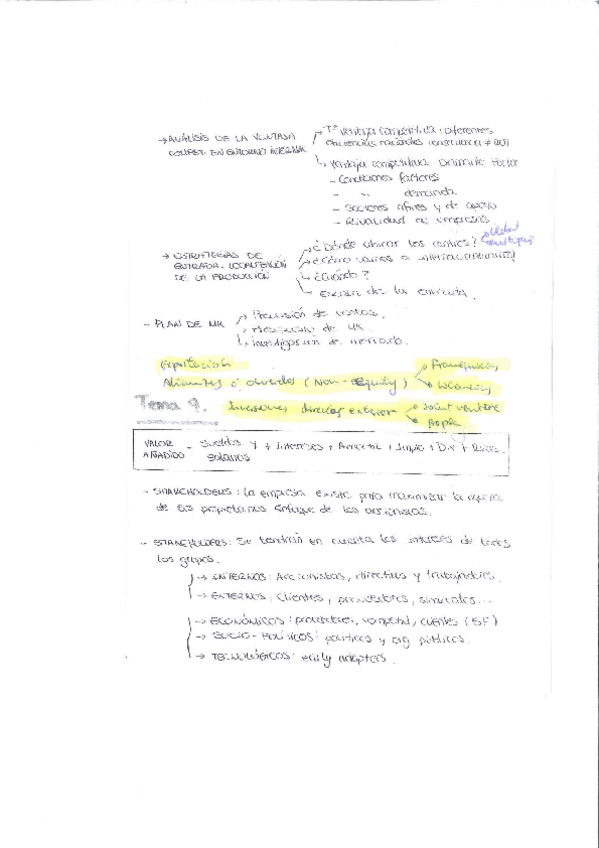 → ANÁLISIS DE LA VENTAJA COMPET. EN ENTORNO
Tª Ventaja Competitiva: diferentes
nacionales
Ventaja competitiva. Diamante Porter
- Condiciones factores
- " demanda
- Sectores afines y de apoyo
- Rivalidad de empresas
→ ESTRATEGIAS DE ENTRADA. LOCALIZACIÓN DE LA PRODUCCIÓN
¿Dónde ubicar los centros?
¿Cómo vamos a
¿Cuándo?
Escala de la entrada.
- PLAN DE MK
Previsión de ventas.
de MK.
Investigación de mercado.
Exportación
Alianzas o acuerdos (Non-Equity)
Franquicias
Licencias
Tema 9.
Inversiones directas exterior
Joint venture
Propia
VALOR AÑADIDO = Sueldos y salarios + Intereses + Amort + Impto + Div + Rvas.
- SHAREHOLDERS: La empresa existe para maximizar la riqueza
de sus propietarios enfoque de los accionistas.
- STAKEHOLDERS: Se tendrán en cuenta los intereses de todos
los grupos.
→ INTERNOS: Accionistas, directivos y trabajadores.
→ EXTERNOS: Clientes, proveedores, sindicatos...
→ ECONÓMICOS: proveedores, clientes (5F)
→ SOCIO-POLÍTICOS: políticos y org públicos.
→ TECNOLÓGICOS: early adopters.